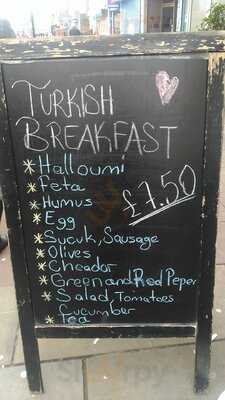 TURKISH
BREAKFAST
* Halloumi
* Feta
* Humus
£7.50
* Egg
* Sucuk, Sausage
* Olives
* Cheador
* Green and Red Peper
* Salad, Tomatoes
Cucumber
* Tea